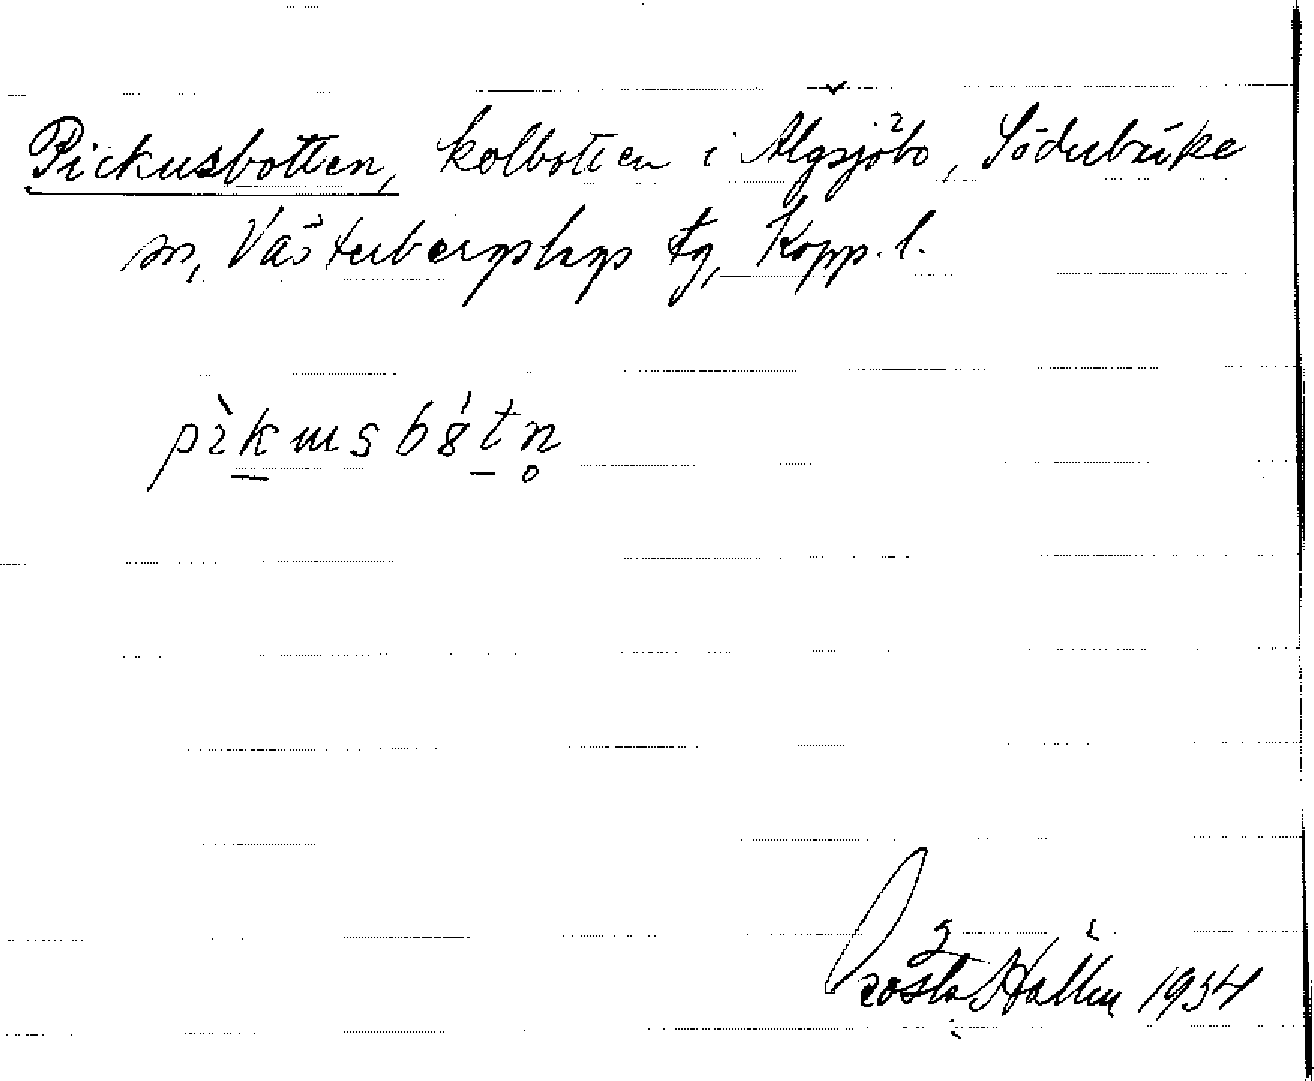 Pickusbotten, kolbotten i Älgsjöbo, Söderbärke
sn, Västerbergslags tg, Kopp. l.
pı̀k̠ɯsbȣ́t̠n̥
Gösta Hallén 1934